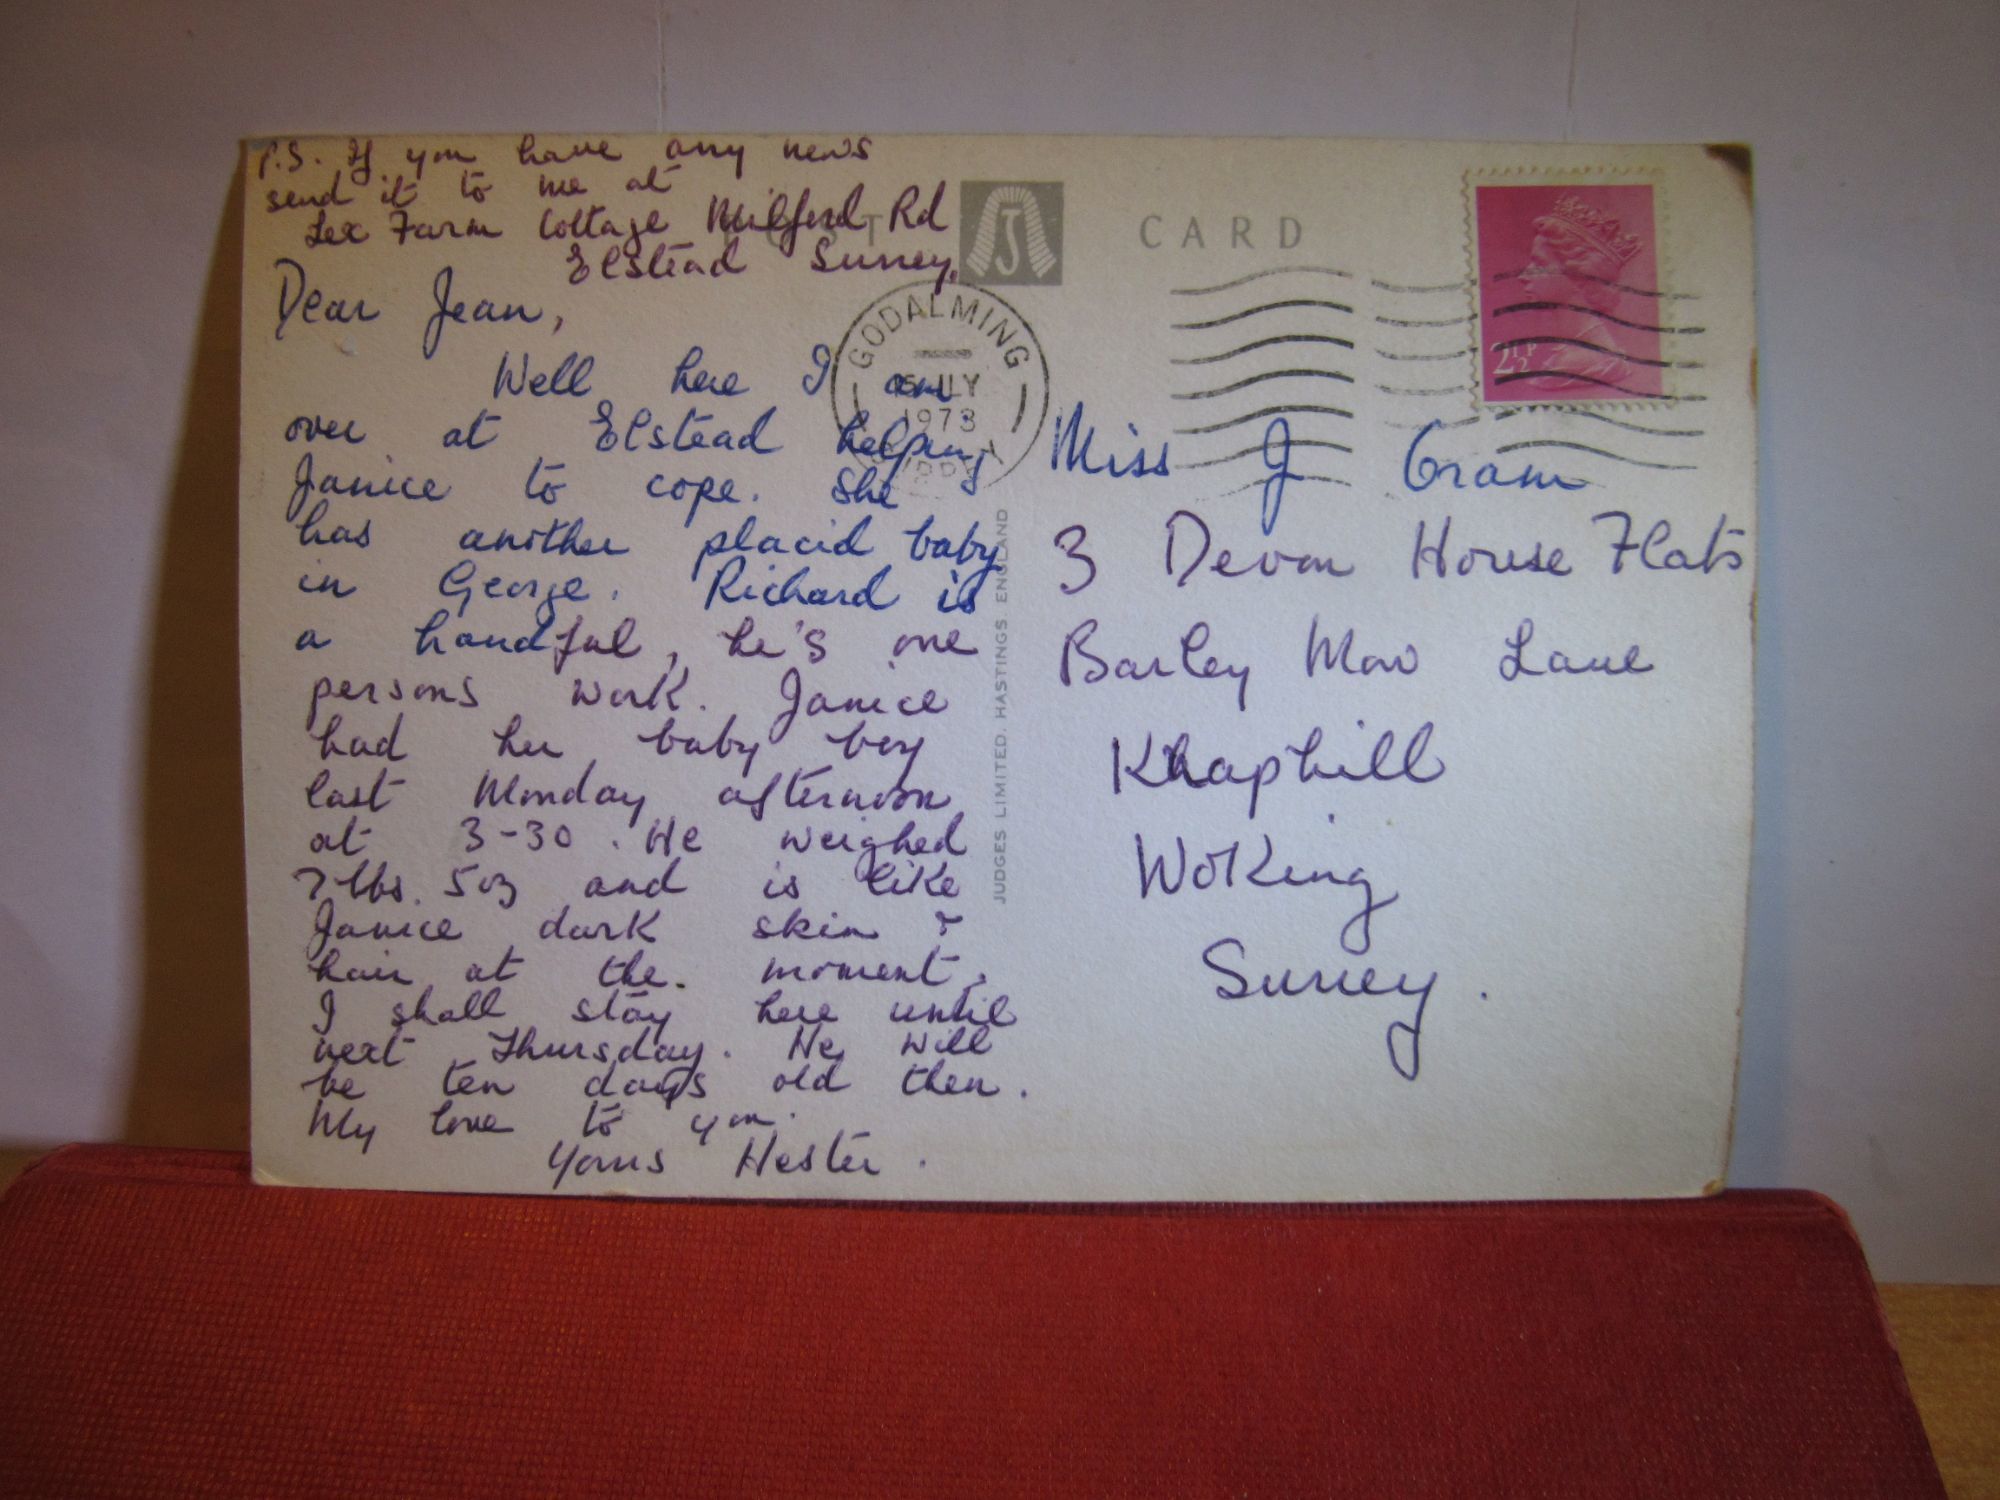 P.S. If you have any news
send it to me at
Lex Farm Cottage Milford Rd
Elstead Surrey.
Dear Jean,
Well here I am
over at Elstead helping
Janice to cope. She
has another placid baby
in George. Richard is
a handful, he's one
persons work. Janice
had her baby boy
last Monday afternoon
at 3-30. He weighed
7 lbs. 5oz and is like
Janice dark skin &
hair at the. moment.
I shall stay here until
next Thursday. He will
be ten days old then.
My love to you.
Yours Hester.
POST CARD
J
GODALMING
JLY
1973
SURREY
2½P
JUDGES LIMITED. HASTINGS. ENGLAND
Miss J Gram
3 Devon House Flats
Barley Mow Lane
Knaphill
Woking
Surrey.